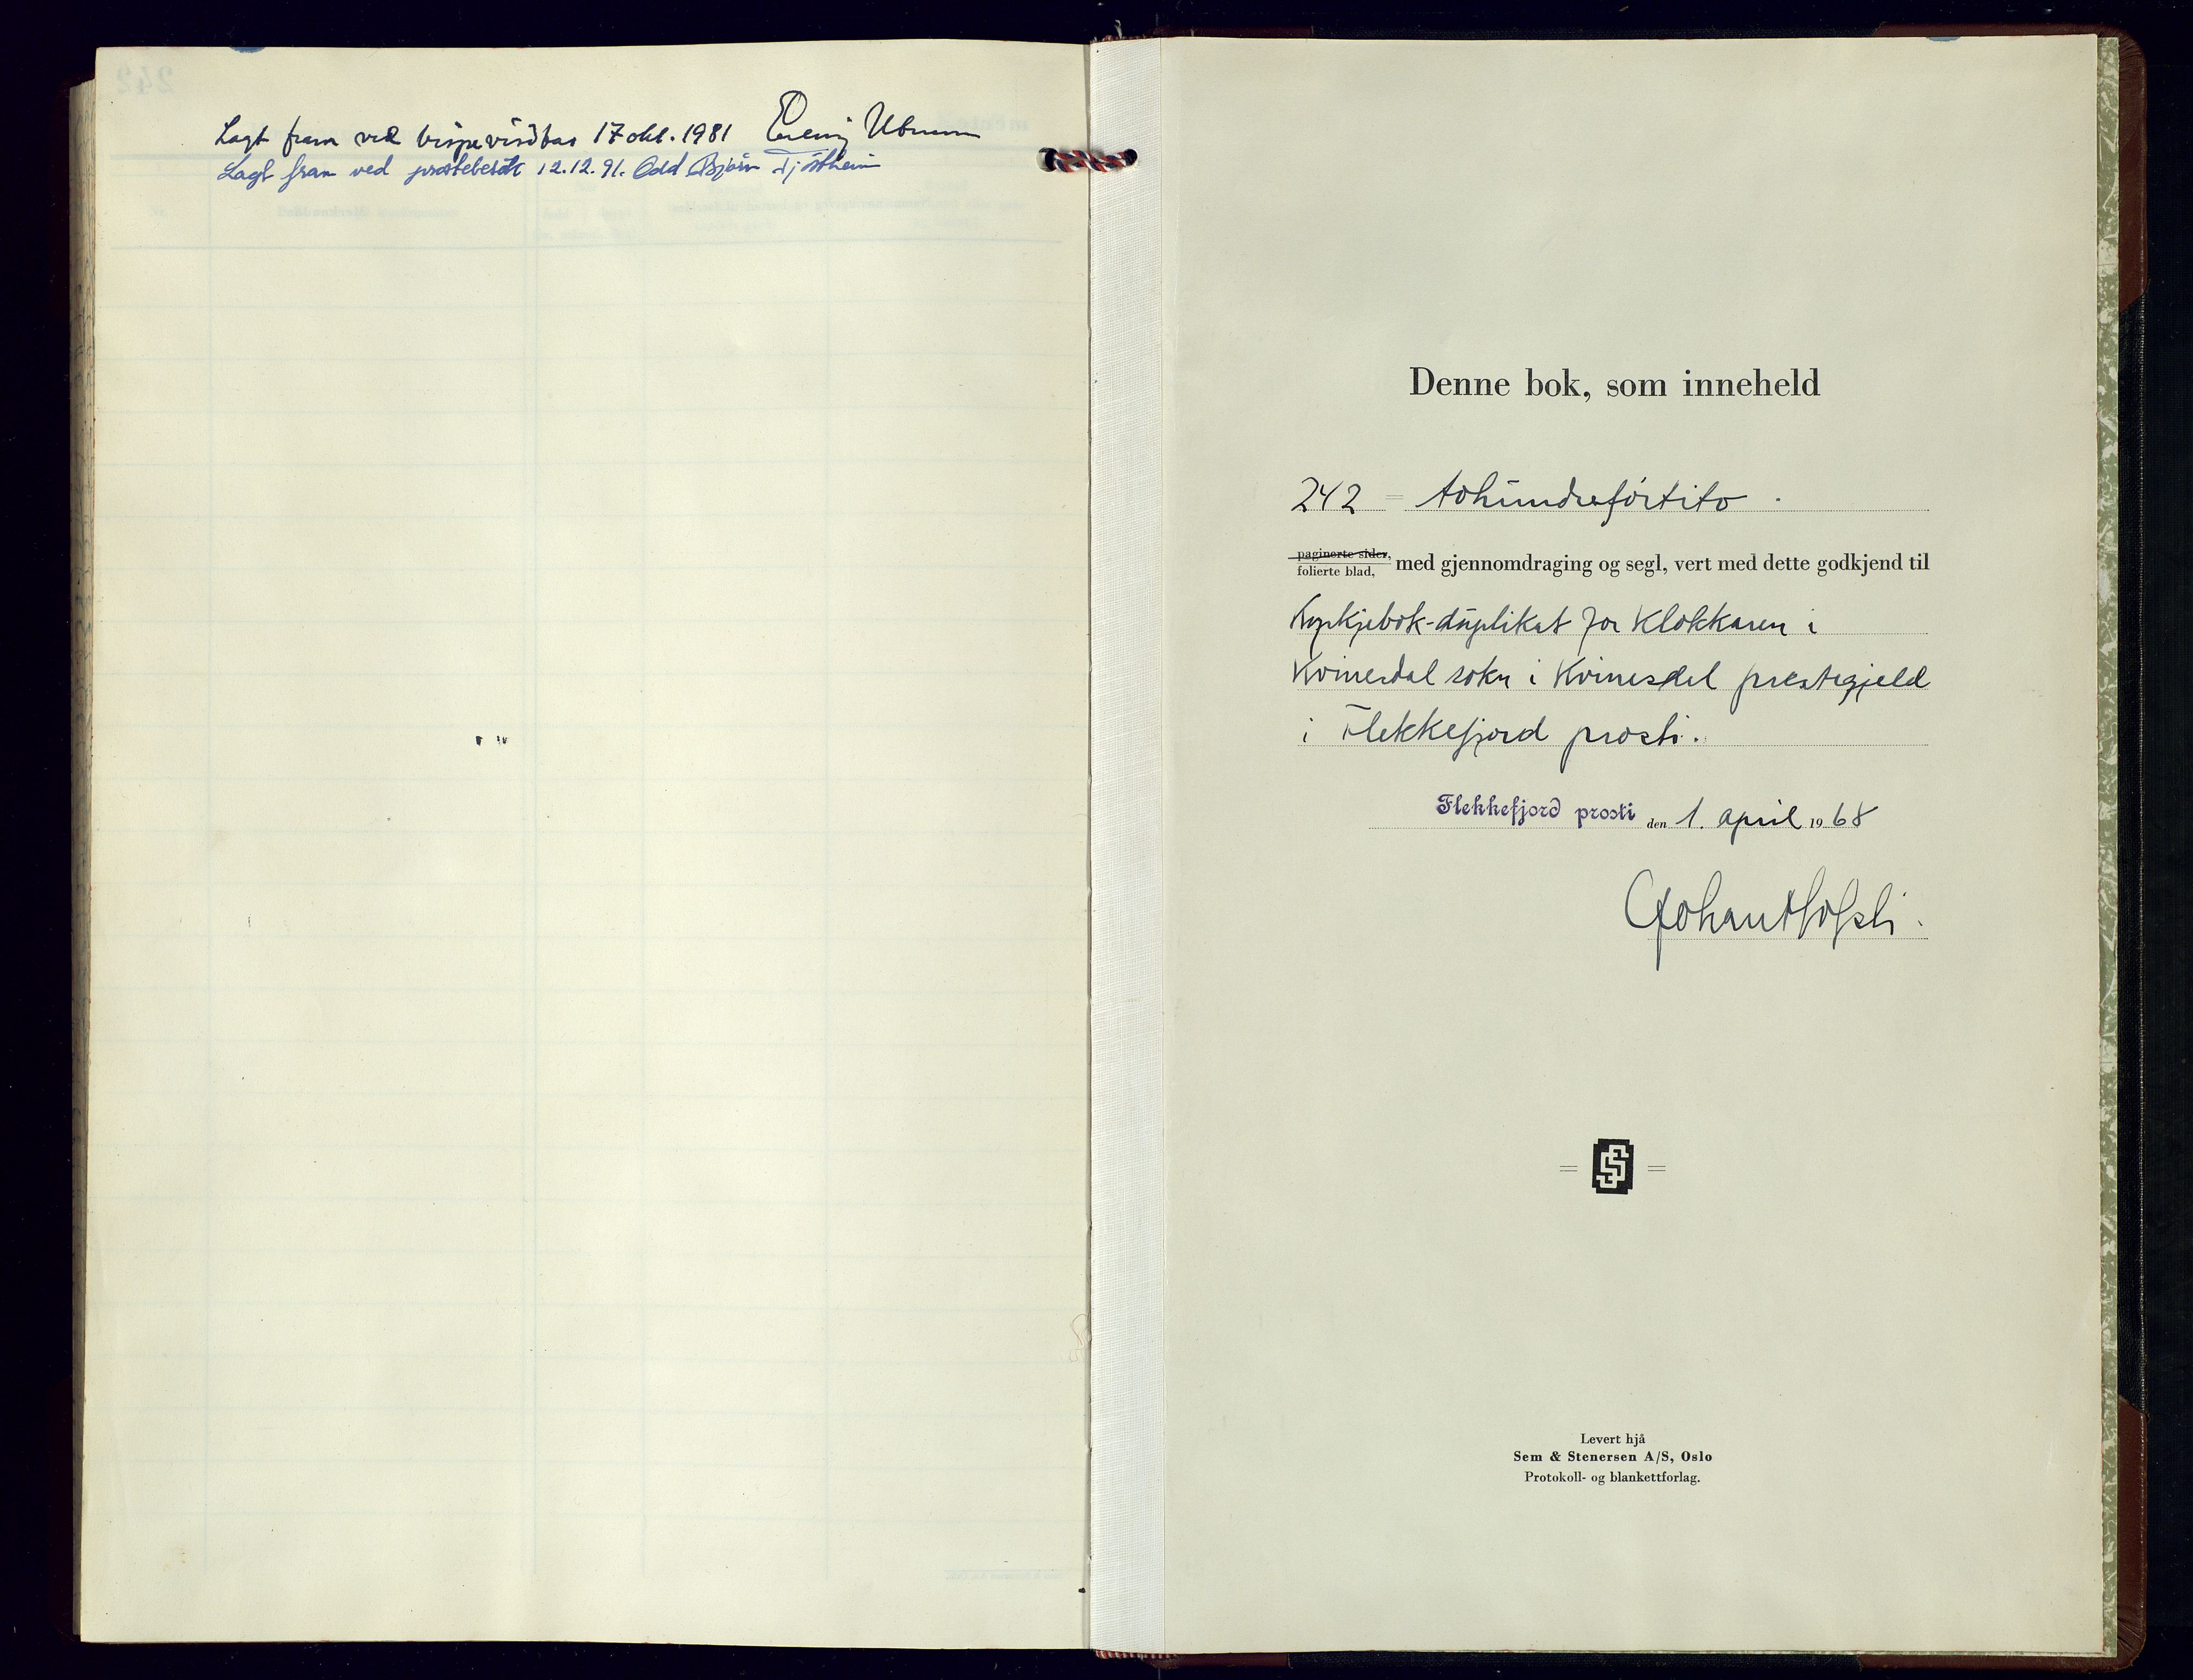 Lagt fram ved bispevisitas 17 okt. 1981 Erling Utnem
Lagt fram ved prostebesøk 12.12.91. Odd Bjørn Tjøstheim
Denne bok, som inneheld
242 = tohundreførtito.
paginerte sider,
folierte blad, med gjennomdraging og segl, vert med dette godkjend til
kyrkjebok-duplikat for klokkaren i
Kvinesdal sokn i Kvinesdal prestegjeld
i Flekkefjord prosti.
Flekkefjord prosti den 1. april 1968
Levert hjå
Sem & Stenersen A/S, Oslo
Protokoll- og blankettforlag.